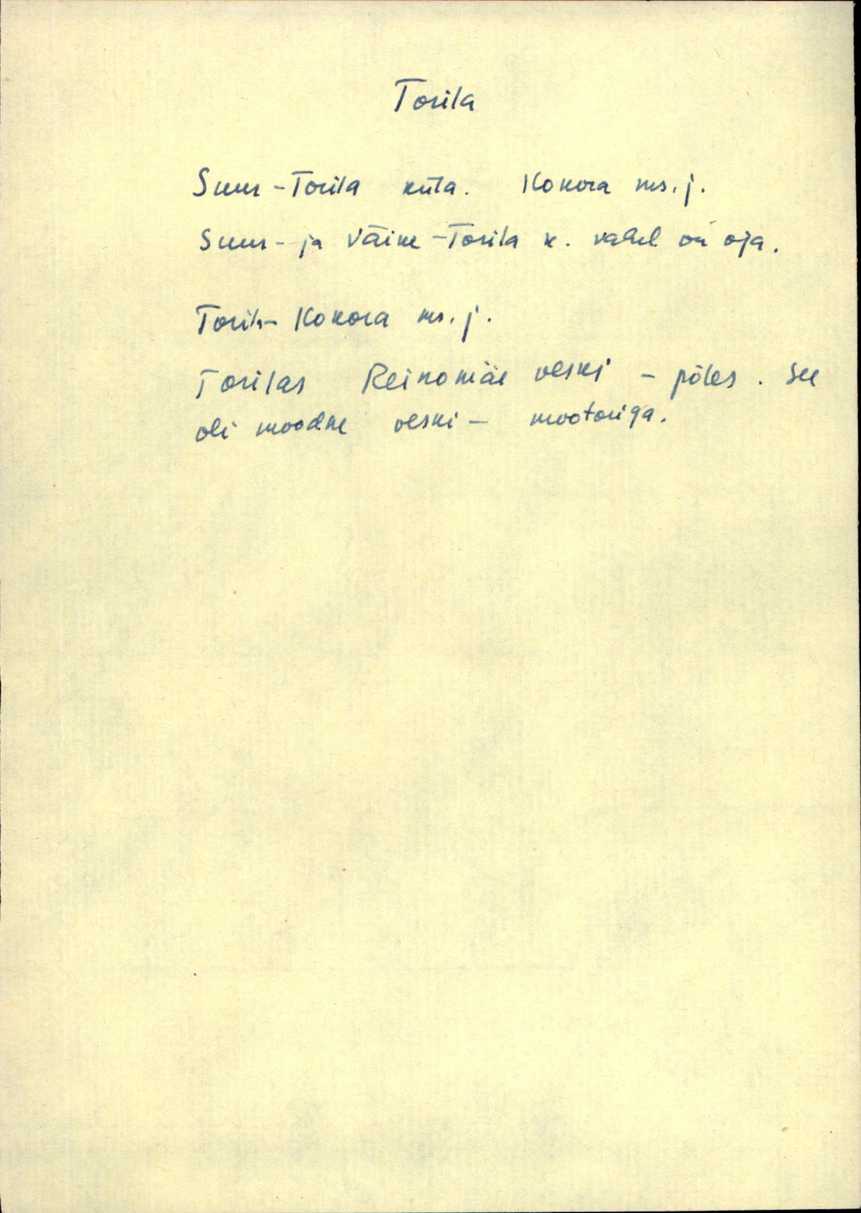 Torila
Suur-Torila küla. Kokora ms. j.
Suur- ja Väike-Torila k. vahel on oja.
Torila Kokora ms. j.
Torilas Reinomäe veski - põles. See
oli moodne veski - mootoriga.